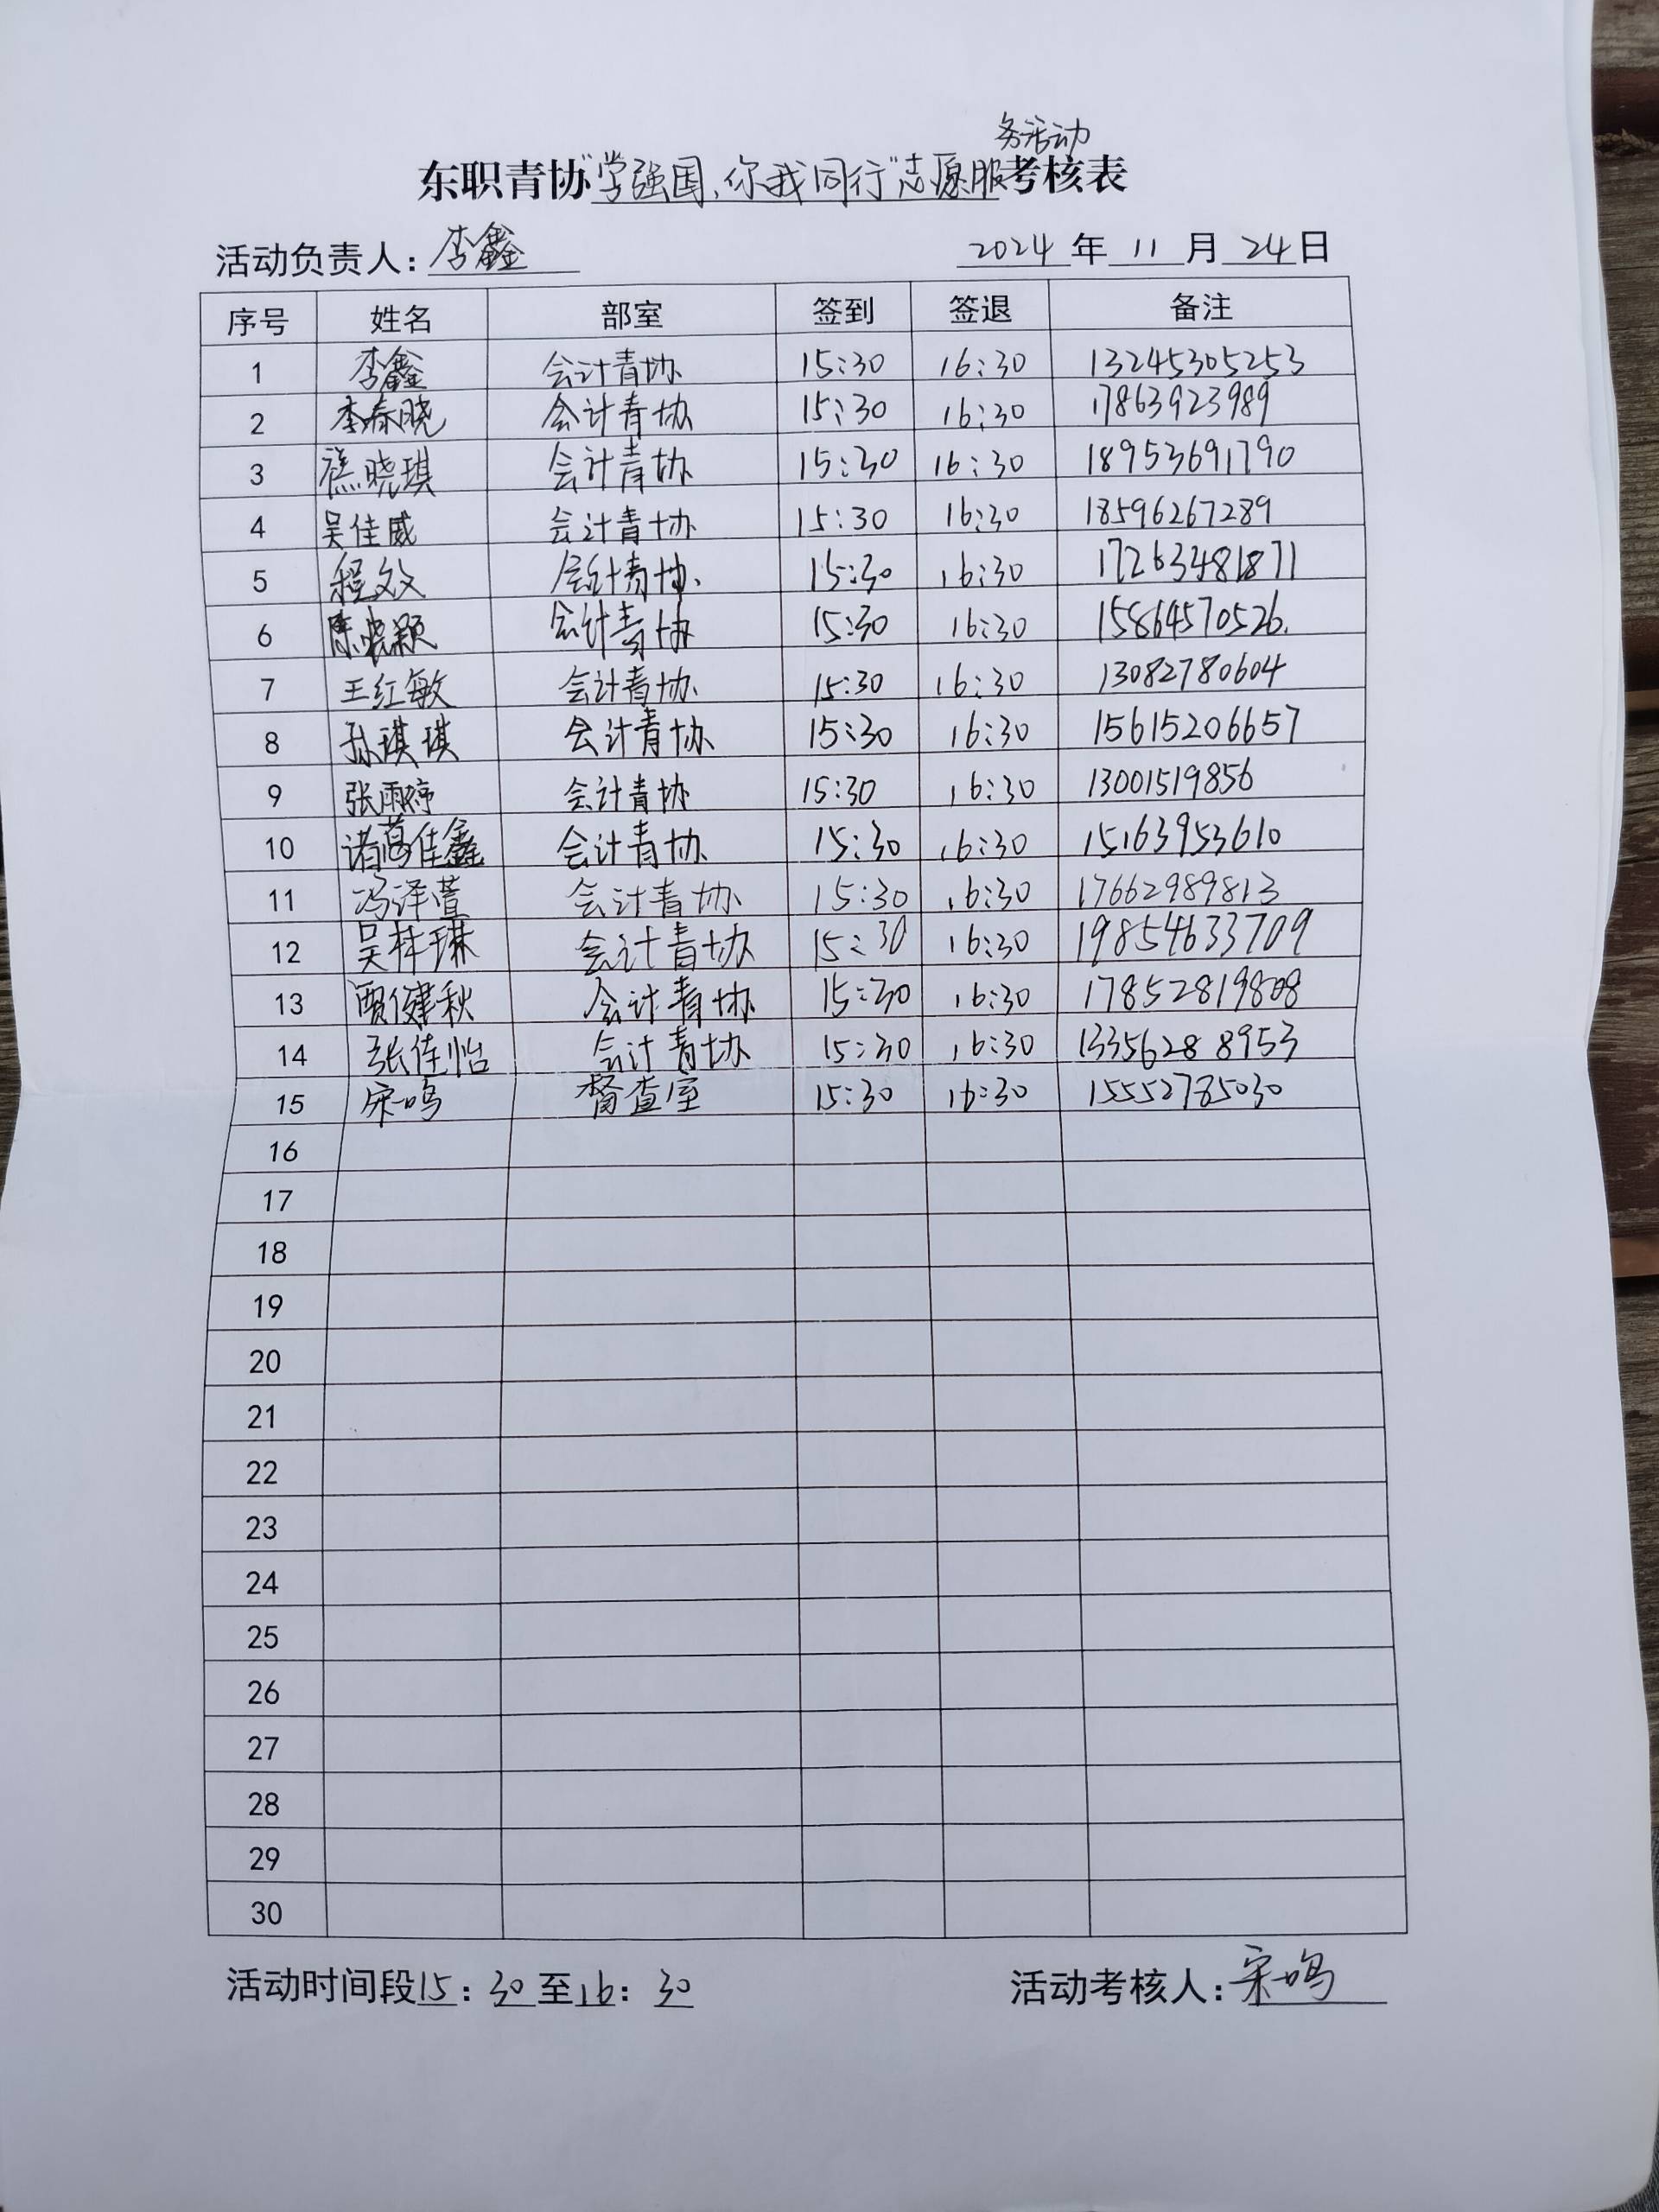 务活动
东职青协“学强国,你我同行”志愿服考核表
活动负责人:李鑫 2024年11月24日
序号 姓名 部室 签到 签退 备注
1 李鑫 会计青协 15:30 16:30 13245305253
2 李春晓 会计青协 15:30 16:30 17863923989
3 晓琪 会计青协 15:30 16:30 18953691790
4 吴佳威 会计青协 15:30 16:30 18596267289
5 程效 会计青协 15:30 16:30 17263481871
6 陈晓颖 会计青协 15:30 16:30 15864570526.
7 王红敏 会计青协 15:30 16:30 13082780604
8 孙琪琪 会计青协 15:30 16:30 15615206657
9 张雨婷 会计青协 15:30 16:30 13001519856
10 诸葛佳鑫 会计青协 15:30 16:30 15163953610
11 冯泽萱 会计青协 15:30 16:30 17662989813
12 吴梓琳 会计青协 15:30 16:30 19854633709
13 贾健秋 会计青协 15:30 16:30 17852819808
14 张佳怡 会计青协 15:30 16:30 13356288953
15 宋鸣 督查室 15:30 16:30 15552785030
16
17
18
19
20
21
22
23
24
25
26
27
28
29
30
活动时间段15:30至16:30 活动考核人:宋鸣